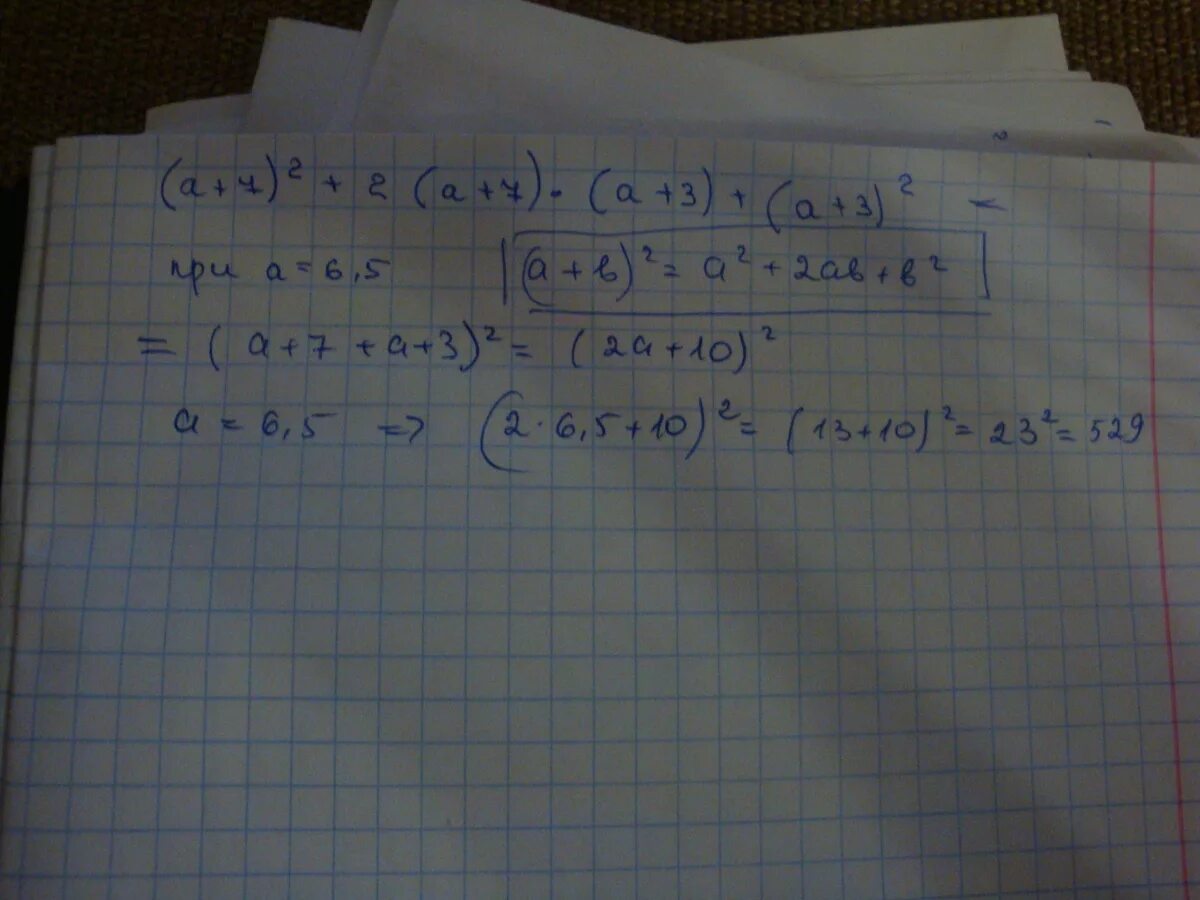 (a+7)² + 2 (a+7) · (a+3) + (a+3)² =
при a = 6,5 |(a + b)² = a² + 2ab + b²|
= (a+7 + a+3)² = (2a+10)²
a = 6,5 => (2·6,5+10)² = (13+10)² = 23² = 529